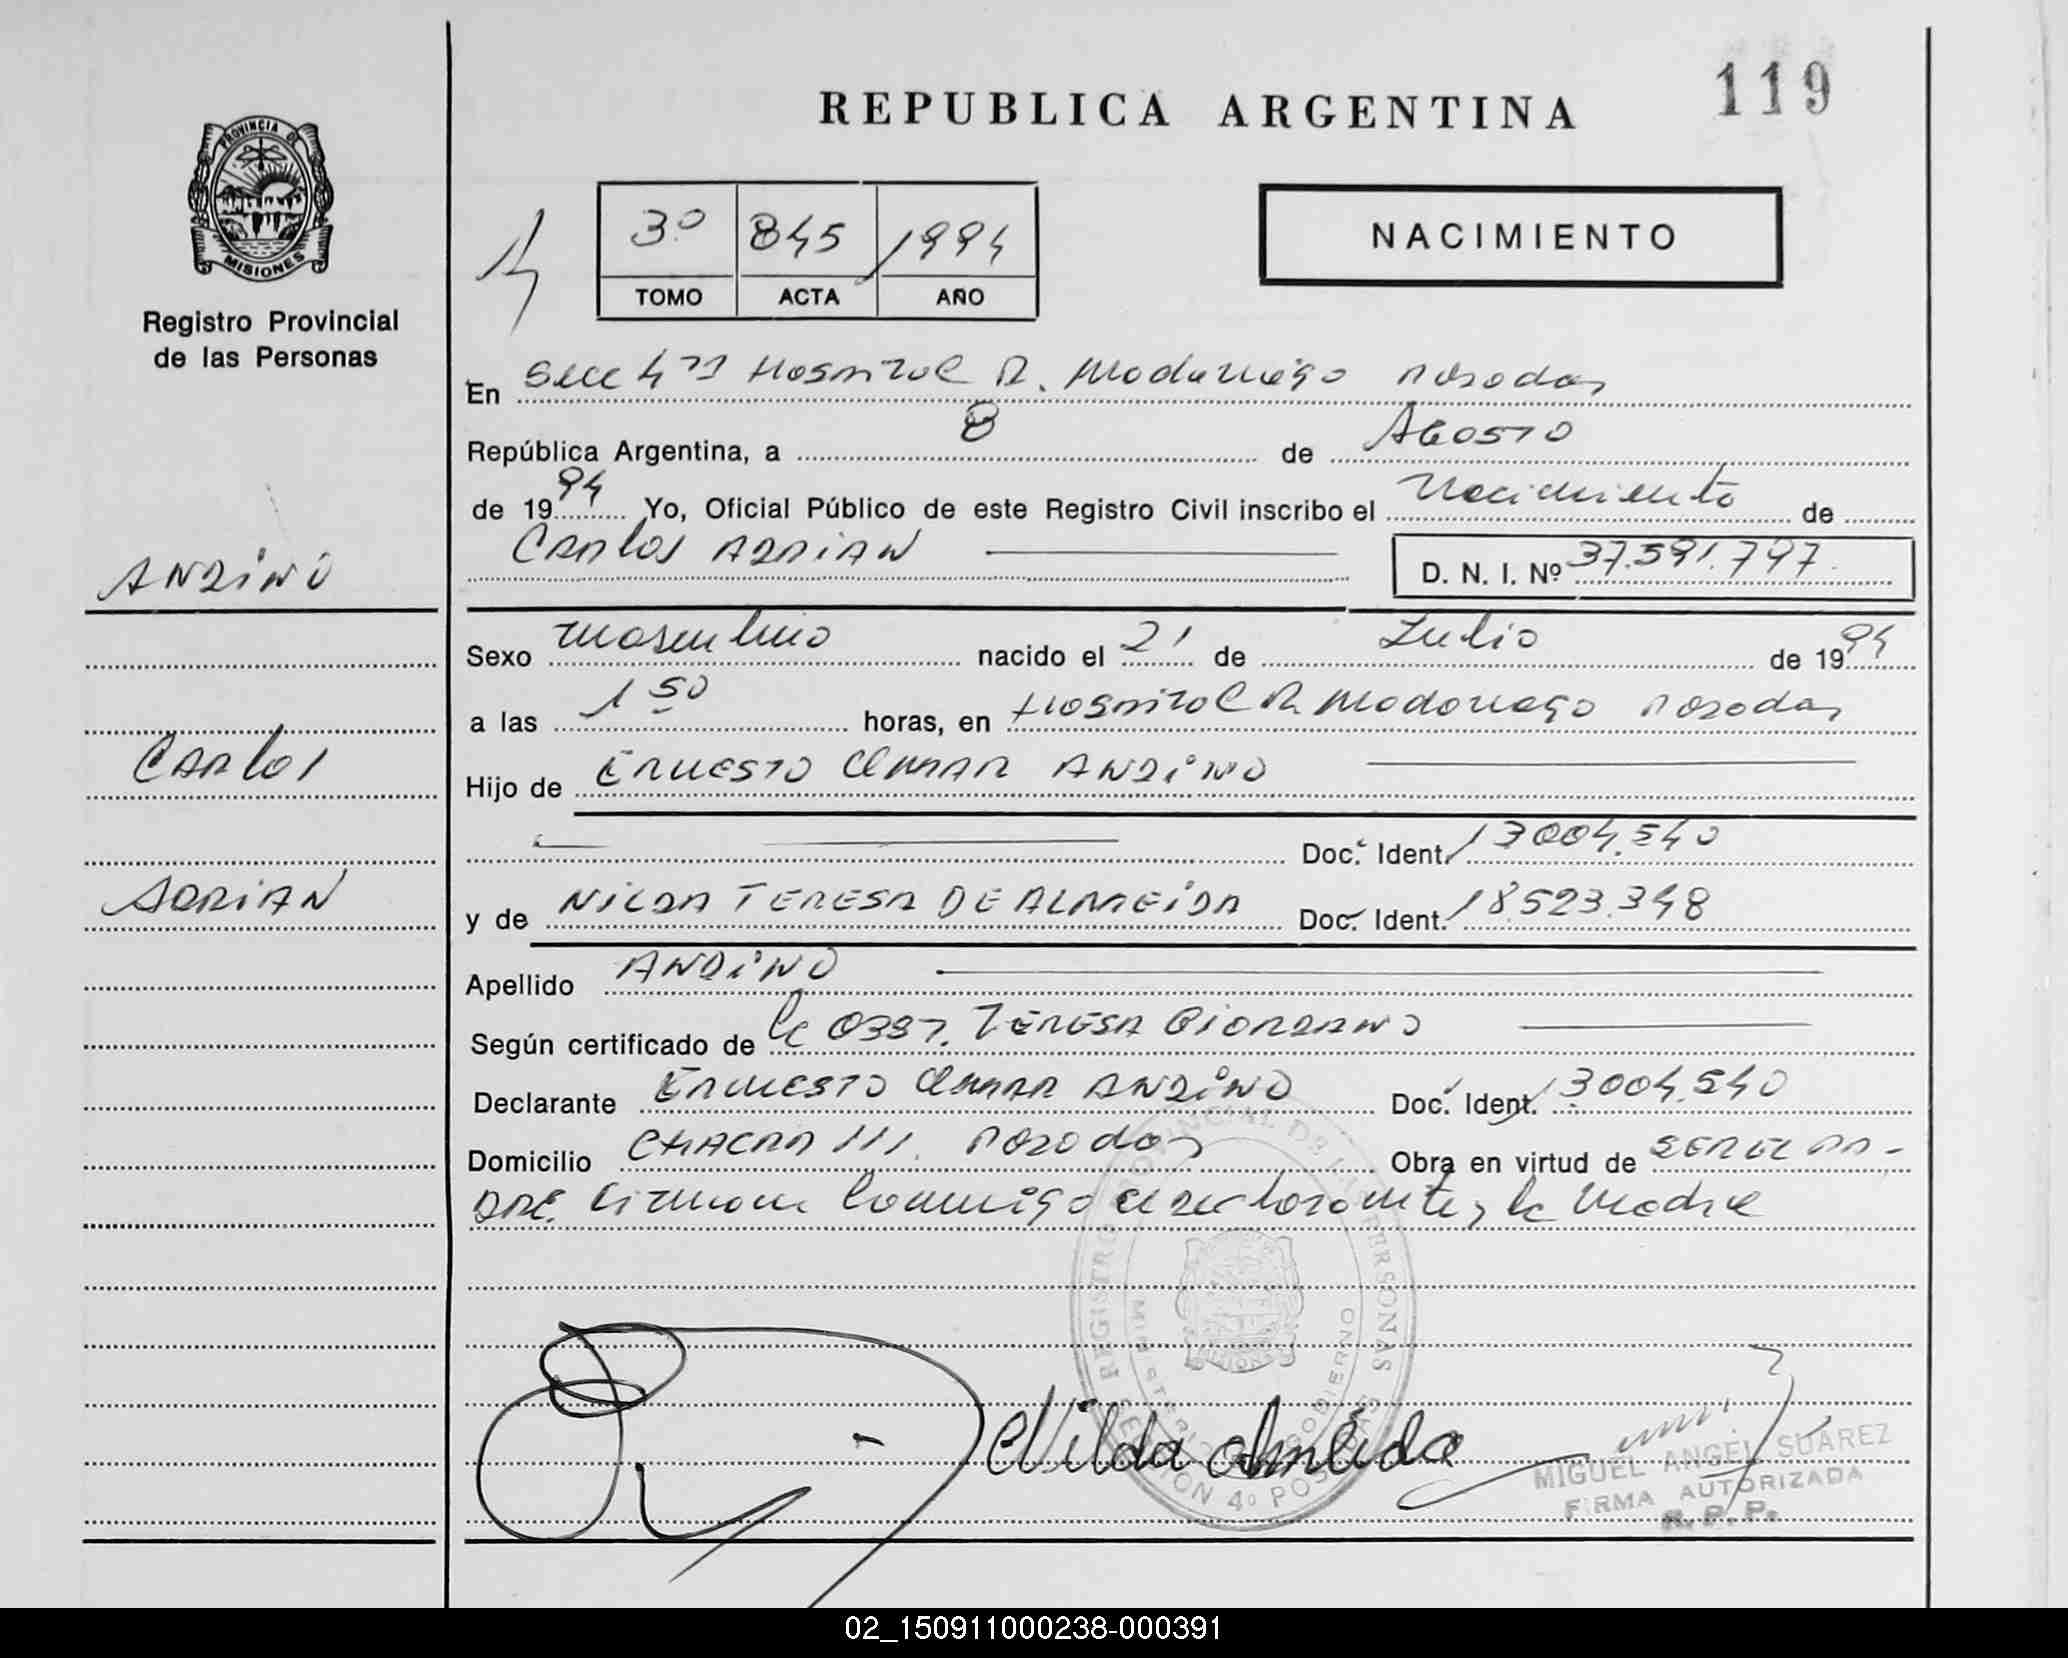 REPUBLICA ARGENTINA
119
PROVINCIA DE
MISIONES
Registro Provincial
de las Personas
3º 845 1994
TOMO ACTA AÑO
NACIMIENTO
En Secc 4ta Hospital R. Madariaga Posadas
República Argentina, a 8 de Agosto
de 1994 Yo, Oficial Público de este Registro Civil inscribo el Nacimiento de
Carlos Adrian
D. N. I. Nº 37.591.797
Andino
Carlos
Adrian
Sexo Masculino nacido el 21 de Julio de 1994
a las 1 50 horas, en Hospital R. Madariaga Posadas
Hijo de Ernesto Omar Andino
Doc. Ident. 13004.540
y de Nilda Teresa De Almeida Doc. Ident. 18.523.348
Apellido Andino
Según certificado de la Obst. Teresa Giordano
Declarante Ernesto Omar Andino Doc. Ident. 13.004.540
Domicilio Chacra 111. Posadas Obra en virtud de ser el pa-
dre. Firman Conmigo el declarante y la Madre
REGISTRO PROVINCIAL DE LAS PERSONAS
MINISTERIO GOBIERNO
SECCION 4º POSADAS
Nilda Almeida
MIGUEL ANGEL SUAREZ
FIRMA AUTORIZADA
R. P. P.
02_150911000238-000391